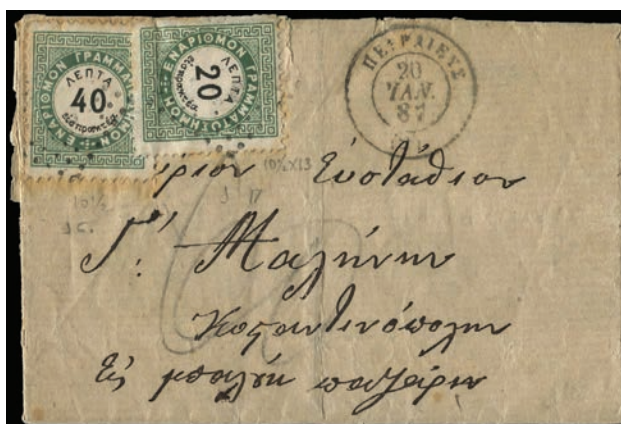 ΕΝΑΡΙΘΜΟΝ ΓΡΑΜΜΑΤΟΣΗΜΟΝ
ΛΕΠΤΑ
40
εἰσπρακτέα
ΕΝΑΡΙΘΜΟΝ ΓΡΑΜΜΑΤΟΣΗΜΟΝ
ΛΕΠΤΑ
20
εἰσπρακτέα
ΠΕΙΡΑΙΕΥΣ
20
ΙΑΝ.
87
10½X13
10½
Κύριον Εὐστάθιον
Γ. Μαλήνην
Κωσταντινόπολην
Εἰς μπαλήκ παζάριν